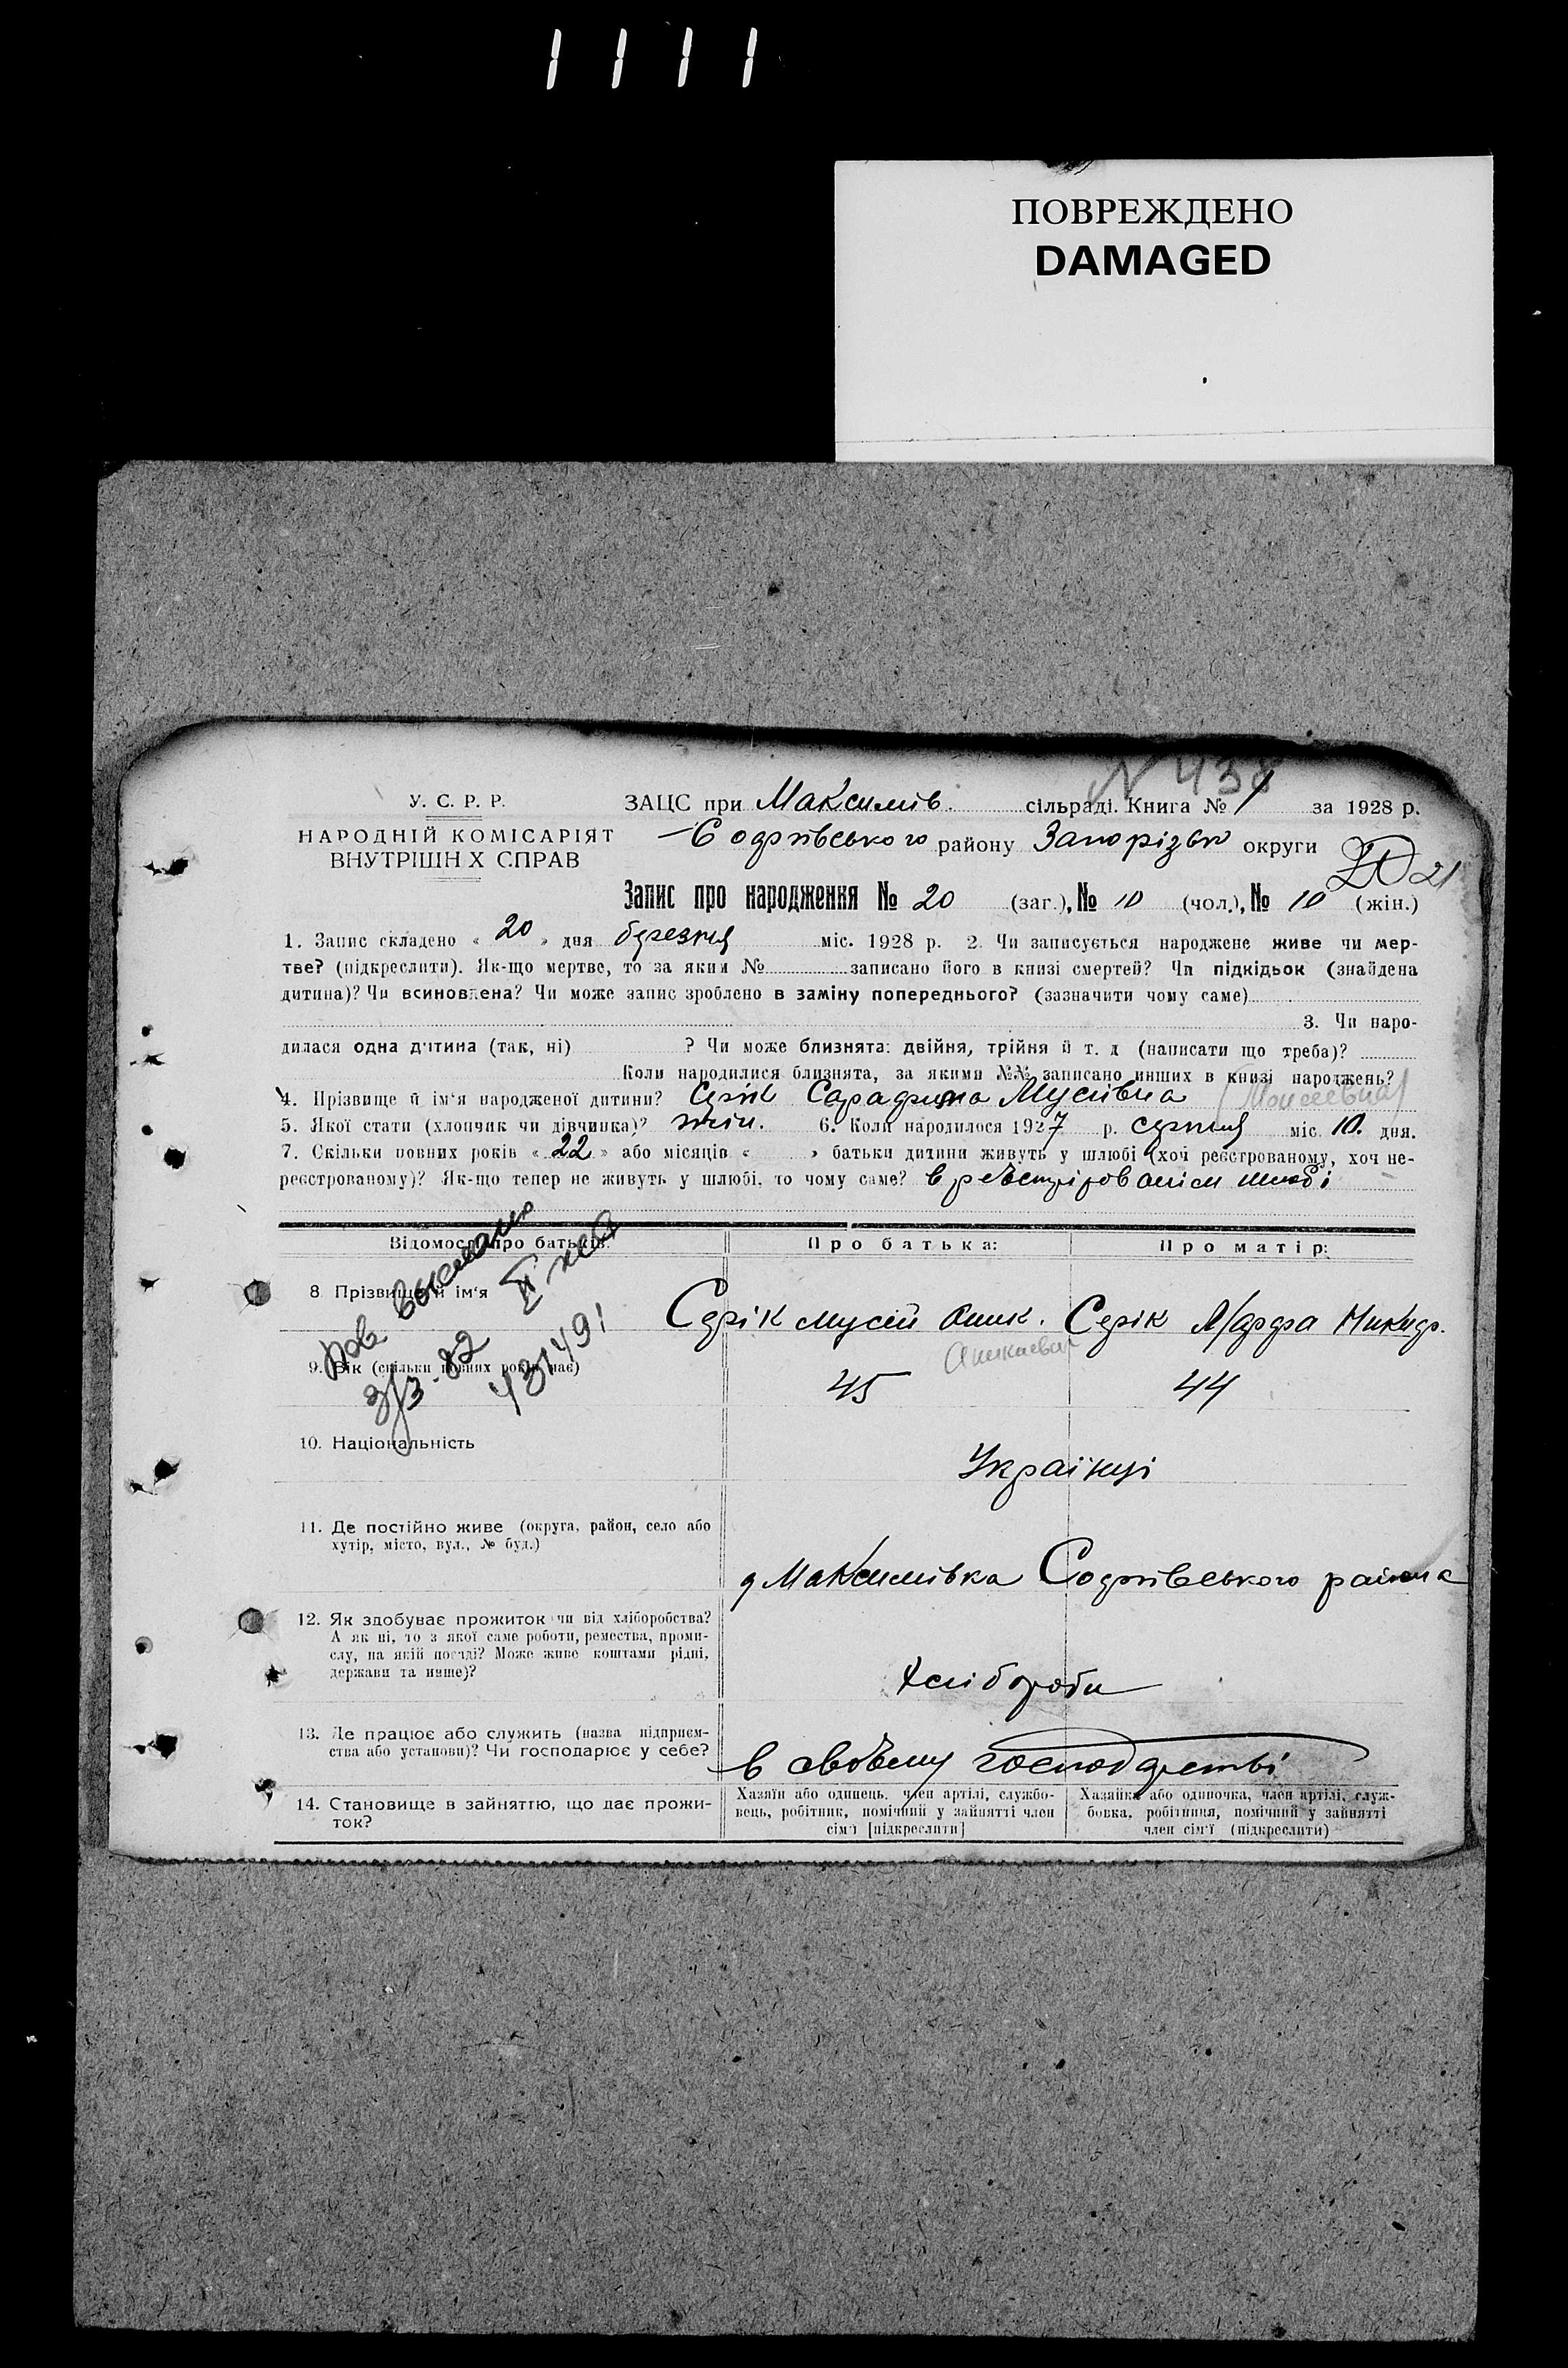 1111
ПОВРЕЖДЕНО
DAMAGED
N 438
У. С. Р. Р.
НАРОДНІЙ КОМІСАРІЯТ
ВНУТРІШН Х СПРАВ
ЗАЦС при Максимів. сільраді. Книга № 1 за 1928 р.
району Запорізьк округи
21
Запис про народження № 20 (заг.), № 10 (чол.), № 10 (жін.)
1. Запис складено « 20 » дня березня міс. 1928 р. 2. Чи записується народжене живе чи мер-
тве? (підкреслити). Як-що мертве, то за яким № записано його в книзі смертей? Чи підкідьок (знайдена
дитина)? Чи всиновлена? Чи може запис зроблено в заміну попереднього? (зазначити чому саме)
3. Чи наро-
дилася одна дитина (так, ні) ? Чи може близнята: двійня, трійня й т. д (написати що треба)?
Коли народилися близнята, за якими №№ записано инших в книзі народжень?
4. Прізвище й ім'я народженої дитини? Сірік Мусіївна (Моисеевна)
5. Якої стати (хлопчик чи дівчинка)? жін. 6. Коли народилося 1927 р. серпня міс. 10. дня.
7. Скільки повних років « 22 » або місяців « » батьки дитини живуть у шлюбі (хоч реєстрованому, хоч не-
реєстрованому)? Як-що тепер не живуть у шлюбі, то чому саме? в шлюбі
Відомості про батьків:
Про батька:
Про матір:
8 Прізвище й ім'я
Серік Мусій Оник. Серік Марфа Никифр.
9. Вік (скільки повних років має)
45
44
10. Національність
Українці
11. Де постійно живе (округа, район, село або
хутір, місто, вул., № буд.)
Максимівка району
12. Як здобуває прожиток чи від хліборобства?
А як ні, то з якої саме роботи, ремества, проми-
слу, на якій посаді? Може живе коштами рідні,
держави та инше)?
Хлібороби
13. Де працює або служить (назва підприєм-
ства або установи)? Чи господарює у себе?
в своъему господарстві
14. Становище в зайняттю, що дає прожи-
ток?
Хазяїн або одинець. член артілі, службо-
вець, робітник, помічний у зайнятті член
сім'ї [підкреслити]
Хазяйка або одиночка, член артілі, служ-
бовка, робітниця, помічний у зайнятті
член сім'ї (підкреслити)